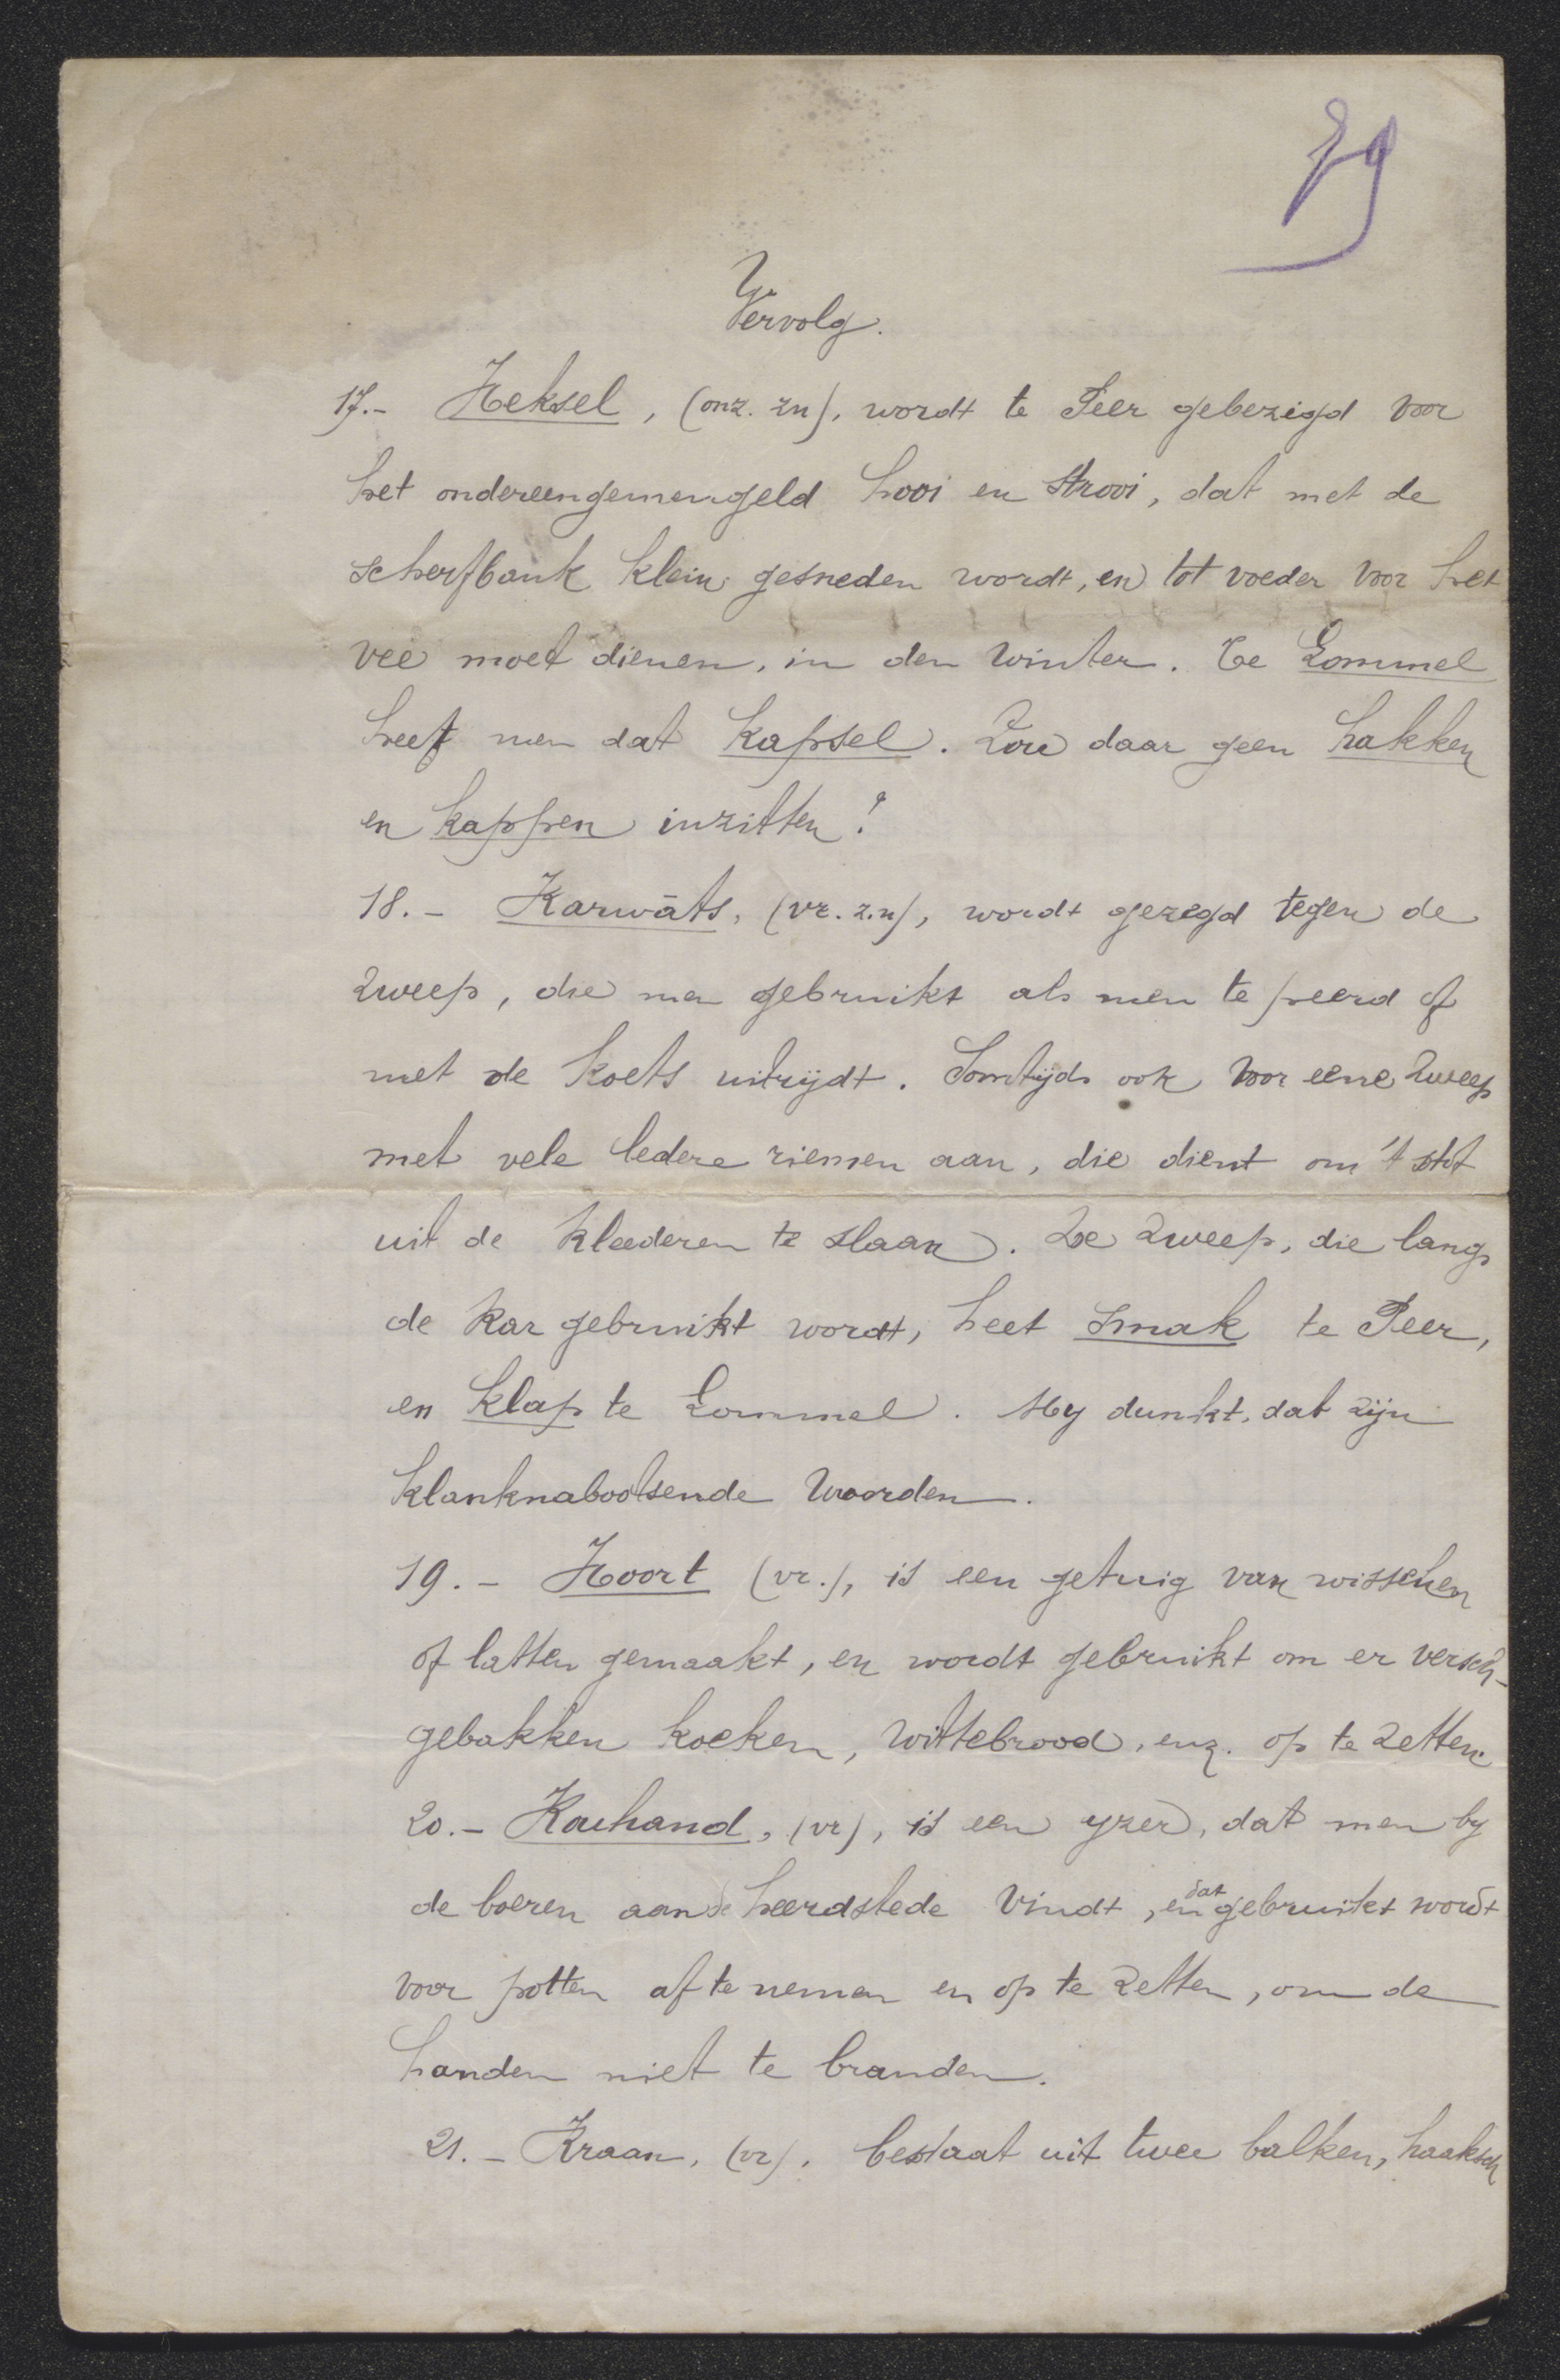 39
Vervolg.
17.- Heksel, (onz. zn), wordt te Peer gebezigd voor
het ondereengemengeld hooi en strooi, dat met de
scherfbank klein gesneden wordt, en tot voeder voor het
vee moet dienen, in den winter. Te Lommel
heet men dat kapsel. Zou daar geen hakken
en kappen inzitten?
18.- Karwāts, (vr. z.n), wordt gezegd tegen de
zweep, die men gebruikt als men te peerd of
met de koets uitrijdt. Somtijds ook voor eene zweep
met vele ledere riemen aan, die dient om 't stof
uit de kleederen te slaan. De zweep, die langs
de kar gebruikt wordt, heet smak te Peer,
en klap te Lommel. My dunkt, dat zijn
klanknabootsende woorden.
19.- Hoort (vr.), is een getuig van wisschen
of latten gemaakt, en wordt gebruikt om er versch-
gebakken koeken, wittebrood, enz. op te zetten.
20.- Kouhand, (vr), is een yzer, dat men by
de boeren aan de heerdstede vindt, en dat gebruikt wordt
voor potten af te nemen en op te zetten, om de
handen niet te branden.
21.- Kraan, (vr). bestaat uit twee balken, haaksch